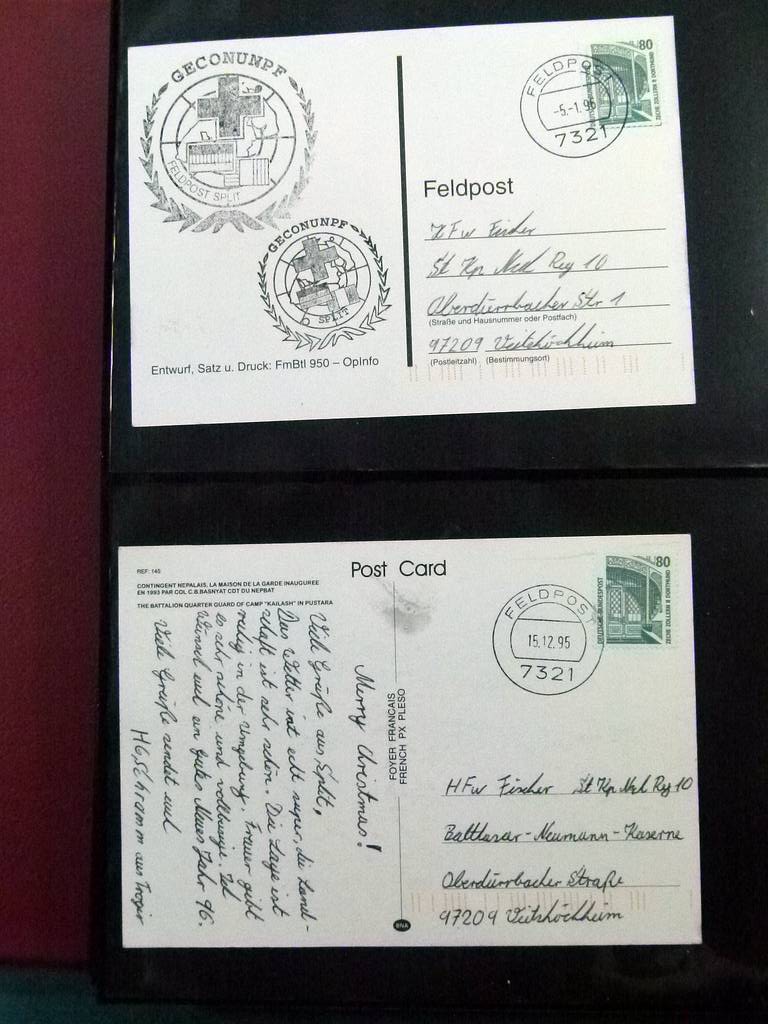 GECONUNPF
FELDPOST SPLIT
GECONUNPF
SPLIT
Entwurf, Satz u. Druck: FmBtl 950 – OpInfo
80
ZECHE ZOLLERN II DORTMUND
FELDPOST
-5.-1.96
7321
Feldpost
HFw Fischer
St Kp Nsch Reg 10
Oberdürrbacher Str 1
(Straße und Hausnummer oder Postfach)
97209 Veitshöchheim
(Postleitzahl) (Bestimmungsort)
REF: 145
CONTINGENT NEPALAIS, LA MAISON DE LA GARDE INAUGUREE
EN 1993 PAR COL C.B.BASNYAT CDT DU NEPBAT
THE BATTALION QUARTER GUARD OF CAMP "KAILASH" IN PUSTARA
Post Card
Merry Christmas!
Viele Grüße aus Split,
Das Wetter ist echt super, die Land-
schaft ist sehr schön. Die Lage ist
ruhig in der Umgebung. Frauen gibt
es sehr schöne und vollbusige. Ich
Wünsch euch ein gutes Neues Jahr 96.
Viele Grüße sendet euch
HG Schramm aus Trogir
FOYER FRANCAIS
FRENCH PX PLESO
BNA
80
DEUTSCHE BUNDESPOST
ZECHE ZOLLERN II DORTMUND
FELDPOST
15.12.95
7321
HFw Fischer St Kp Nsch Reg 10
Balthasar-Neumann-Kaserne
Oberdürrbacher Straße
97209 Veitshöchheim